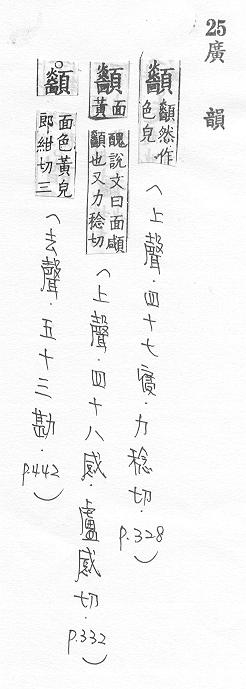 25
廣韻
顲顲然作色皃(上聲.四十七寑.力稔切.p.328)
顲面黃醜說文曰面顑顲也又力稔切(上聲.四十八感.盧感切.p.332)
○顲面色黃皃郎紺切三(去聲.五十三勘.p.442)